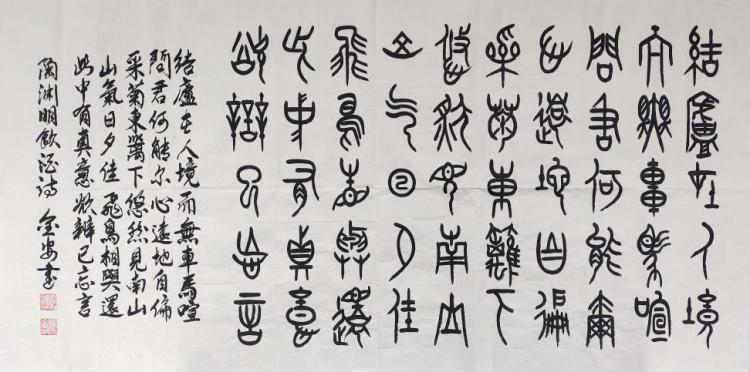 結廬在人境
而無車馬喧
問君何能爾
心遠地自偏
采菊東籬下
悠然見南山
山气日夕佳
飛鳥相與還
此中有真意
欲辯已忘言
结廬在人境而無車馬喧
問君何能尔心遠地自偏
采菊東籬下悠然見南山
山氣日夕佳飛鳥相與還
此中有真意欲辨已忘言
陶渊明飲酒诗 金安書